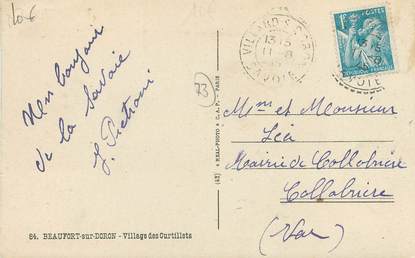 10 €
VILLARD-S-DORON
13 15
11-8
SAVOIE
POSTES
1F
73
Mon bonjour
de la Savoie
J. Pietroni
Mme et Monsieur
Léa
Mairie de Collobrière
Collobrière
(Var)
(43) REAL-PHOTO C.A.P. - PARIS
84. BEAUFORT-sur-DORON - Village des Curtillets